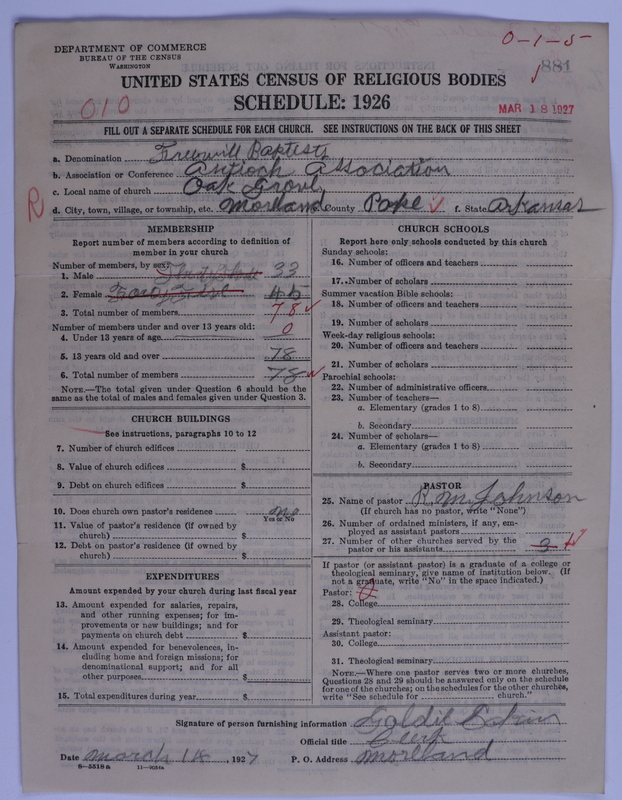 0-1-5-
DEPARTMENT OF COMMERCE
BUREAU OF THE CENSUS
WASHINGTON
881
UNITED STATES CENSUS OF RELIGIOUS BODIES
010
SCHEDULE: 1926
MAR 18 1927
FILL OUT A SEPARATE SCHEDULE FOR EACH CHURCH. SEE INSTRUCTIONS ON THE BACK OF THIS SHEET
a. Denomination Freewill Baptists
b. Association or Conference Antioch Association
c. Local name of church Oak Grove
R d. City, town, village, or township, etc. Morland e. County Pope f. State Arkansas
MEMBERSHIP
Report number of members according to definition of
member in your church
Number of members, by sex:
1. Male 33
2. Female Forty Five 45
3. Total number of members 78
Number of members under and over 13 years old: 0
4. Under 13 years of age
5. 13 years old and over 78
6. Total number of members 78
NOTE.—The total given under Question 6 should be the
same as the total of males and females given under Question 3.
CHURCH BUILDINGS
See instructions, paragraphs 10 to 12
7. Number of church edifices
8. Value of church edifices $
9. Debt on church edifices $
10. Does church own pastor's residence no
Yes or No
11. Value of pastor's residence (if owned by
church) $
12. Debt on pastor's residence (if owned by
church) $
EXPENDITURES
Amount expended by your church during last fiscal year
13. Amount expended for salaries, repairs,
and other running expenses; for im-
provements or new buildings; and for
payments on church debt $
14. Amount expended for benevolences, in-
cluding home and foreign missions; for
denominational support; and for all
other purposes $
15. Total expenditures during year $
CHURCH SCHOOLS
Report here only schools conducted by this church
Sunday schools:
16. Number of officers and teachers
17. Number of scholars
Summer vacation Bible schools:
18. Number of officers and teachers
19. Number of scholars
Week-day religious schools:
20. Number of officers and teachers
21. Number of scholars
Parochial schools:
22. Number of administrative officers
23. Number of teachers—
a. Elementary (grades 1 to 8)
b. Secondary
24. Number of scholars—
a. Elementary (grades 1 to 8)
b. Secondary
PASTOR
25. Name of pastor R. M. Johnson
(If church has no pastor, write "None")
26. Number of ordained ministers, if any, em-
ployed as assistant pastors
27. Number of other churches served by the
pastor or his assistants 3
If pastor (or assistant pastor) is a graduate of a college or
theological seminary, give name of institution below. (If
not a graduate, write "No" in the space indicated.)
Pastor:
28. College
29. Theological seminary
Assistant pastor:
30. College
31. Theological seminary
NOTE.—Where one pastor serves two or more churches,
Questions 28 and 29 should be answered only on the schedule
for one of the churches; on the schedules for the other churches,
write "See schedule for church."
Signature of person furnishing information Goldie
Official title Clerk
Date March 18, 1927 P. O. Address Morland
8-5518a 11-9264a